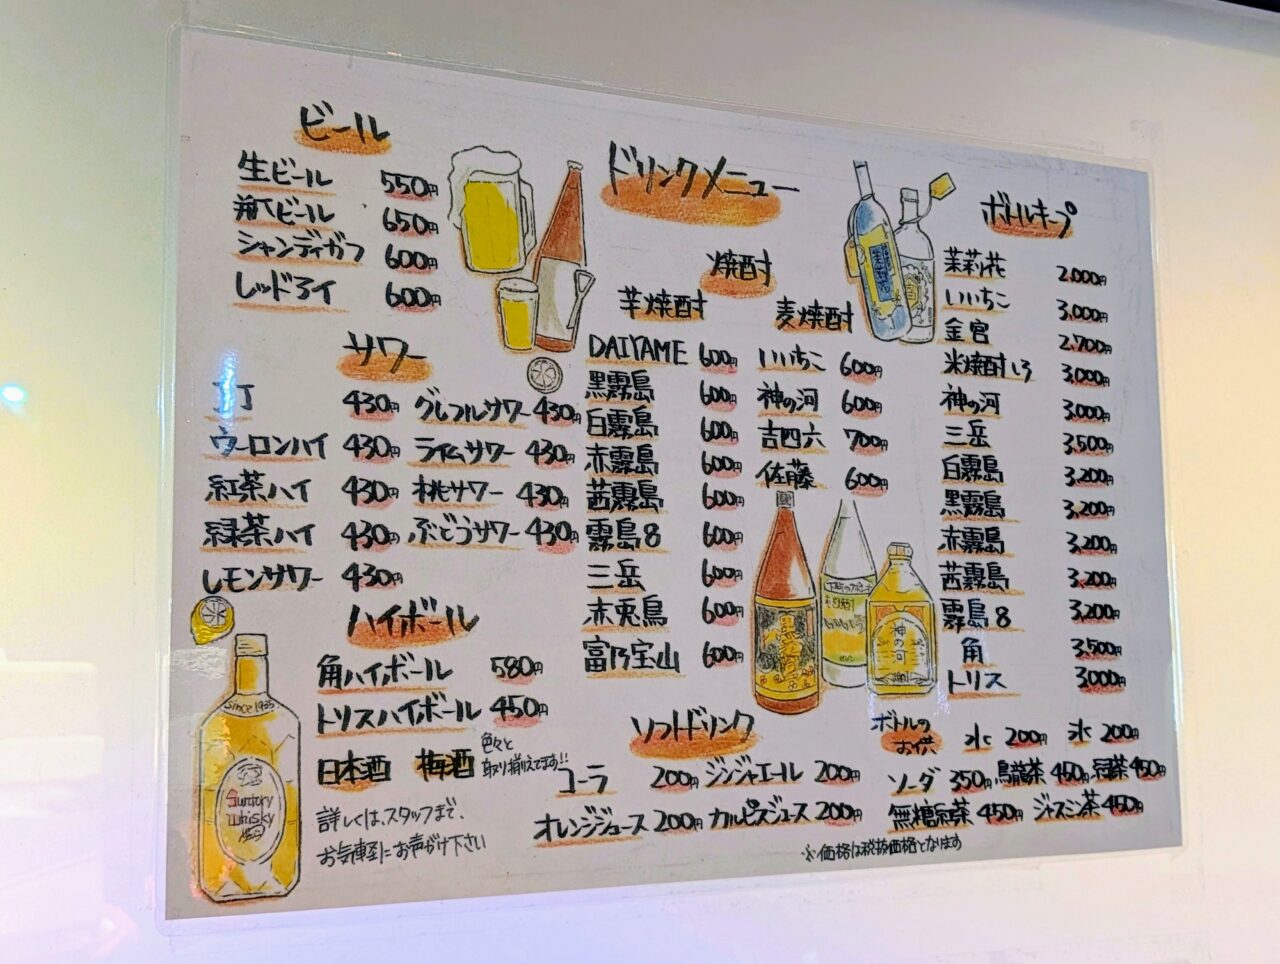 ドリンクメニュー
ビール
生ビール 550円
瓶ビール 650円
シャンディガフ 600円
レッドアイ 600円
サワー
430円
ウーロンハイ 430円
紅茶ハイ 430円
緑茶ハイ 430円
レモンサワー 430円
グレフルサワー 430円
ライムサワー 430円
桃サワー 430円
ぶどうサワー 430円
ハイボール
角ハイボール 580円
トリスハイボール 450円
日本酒 梅酒 色々と
取り揃えてます!!
詳しくは、スタッフまで、
お気軽にお声がけ下さい
焼酎
芋焼酎
DAIYAME 600円
黒霧島 600円
白霧島 600円
赤霧島 600円
茜霧島 600円
霧島8 600円
三岳 600円
赤兎馬 600円
富乃宝山 600円
麦焼酎
いいちこ 600円
神の河 600円
吉四六 700円
佐藤 600円
ボトルキープ
茉莉花 2.000円
いいちこ 3.000円
金宮 2.700円
米焼酎しろ 3.000円
神の河 3.000円
三岳 3.500円
白霧島 3.200円
黒霧島 3.200円
赤霧島 3.200円
茜霧島 3.200円
霧島8 3.200円
角 3.500円
トリス 3.000円
ソフトドリンク
コーラ 200円 ジンジャエール 200円
オレンジジュース 200円 カルピスジュース 200円
ボトルの
お供
氷 200円 水 200円
ソーダ 350円 烏龍茶 450円 緑茶 450円
無糖紅茶 450円 ジャスミン茶 450円
※価格は税抜価格となります
Since 1935
Suntory
Whisky
神の河